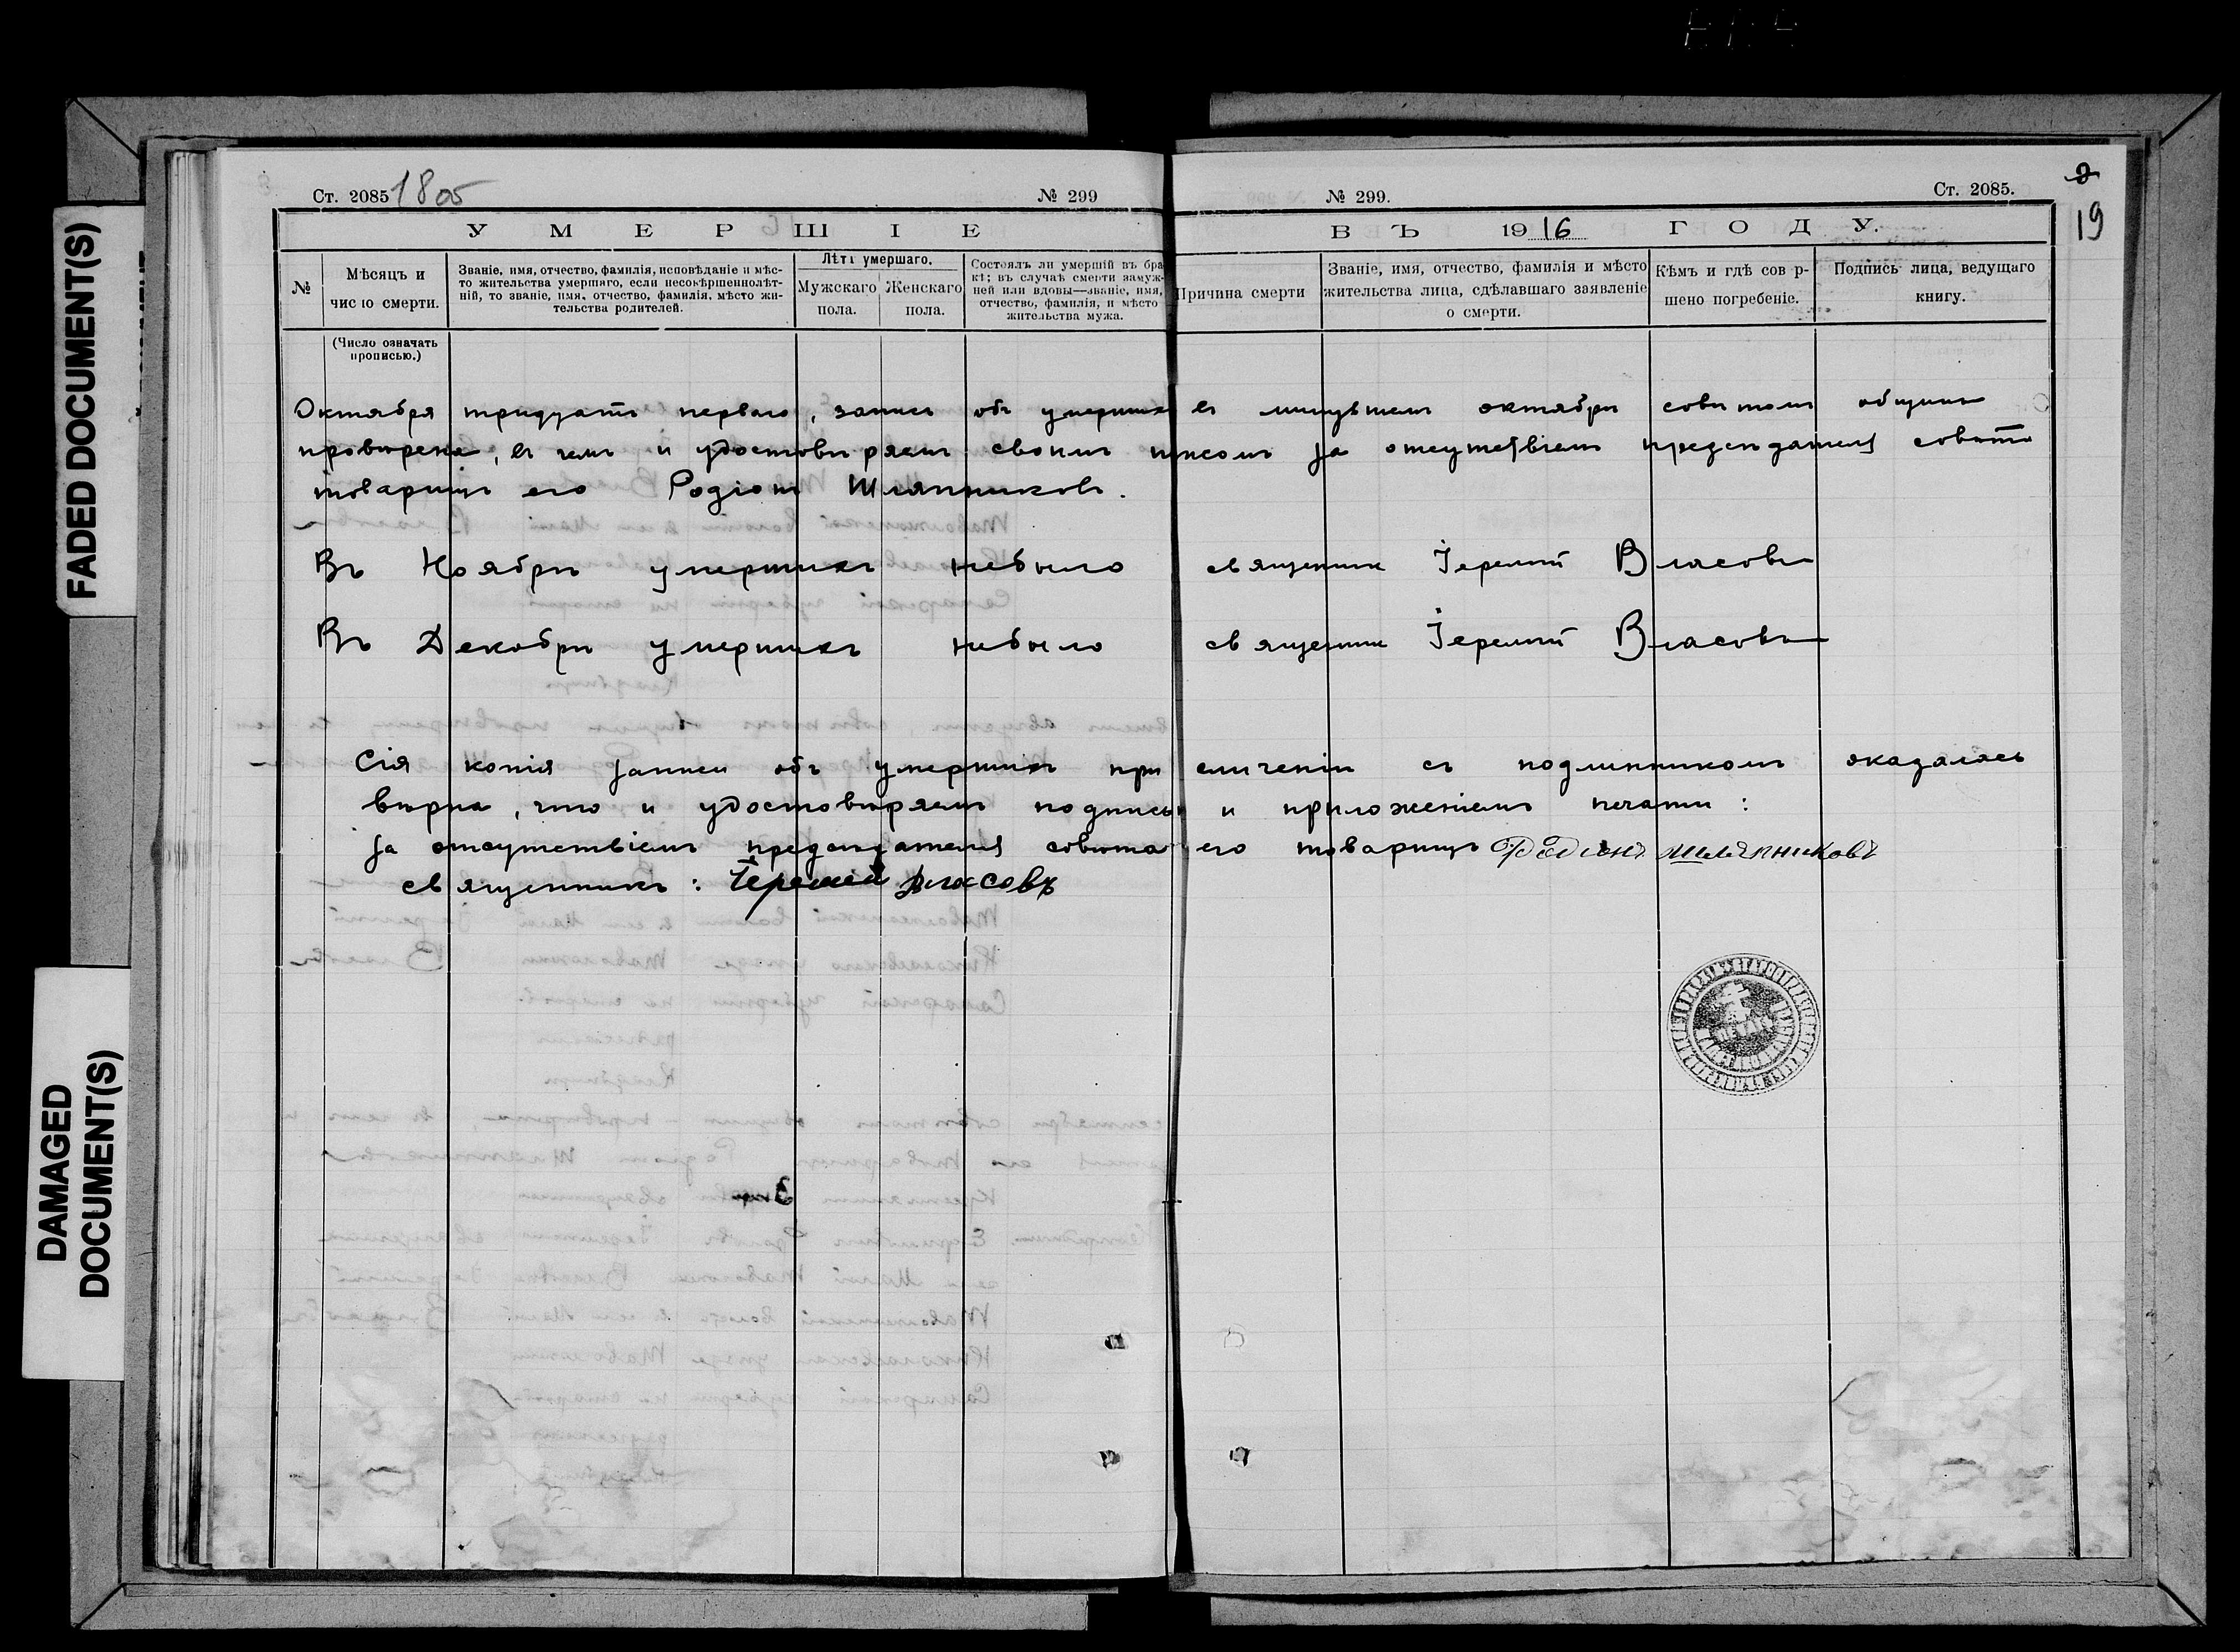 FADED DOCUMENT(S)
DAMAGED DOCUMENT(S)
Ст. 2085 1805 № 299 № 299. Ст. 2085.
19
УМЕРШІЕ ВЪ 1916 ГОДУ.
№
Мѣсяцъ и число смерти.
Званіе, имя, отчество, фамилія, исповѣданіе и мѣсто жительства умершаго, если несовѣршеннолѣтній, то званіе, имя, отчество, фамилія, мѣсто жительства родителей.
Лѣта умершаго.
Мужскаго пола.
Женскаго пола.
Состоялъ ли умершій въ бракѣ; въ случаѣ смерти замужней или вдовы—званіе, имя, отчество, фамилія, и мѣсто жительства мужа.
Причина смерти
Званіе, имя, отчество, фамилія и мѣсто жительства лица, сдѣлавшаго заявленіе о смерти.
Кѣмъ и гдѣ сов р-шено погребеніе.
Подпись лица, ведущаго книгу.
(Число означать прописью.)
Октября тридцать перваго, запись объ умершихъ въ минувшемъ октябрѣ совѣтомъ общины
провѣрена, въ чемъ и удостовѣряемъ своимъ за отсутствіемъ председателя совѣта
товарищъ его Родіонъ Шляпниковъ.
Въ Ноябрѣ умершихъ небыло священникъ Іеремій Власовъ
Въ Декабрѣ умершихъ небыло священникъ Іеремій Власовъ
Сія копія записи объ умершихъ при сличеніи съ подлинникомъ оказалась
вѣрна, что и удостовѣряемъ подписью и приложеніемъ печати:
За отсутствіемъ председателя совѣта его товарищъ Родіонъ Шляпниковъ
священникъ: Іеремій Власовъ